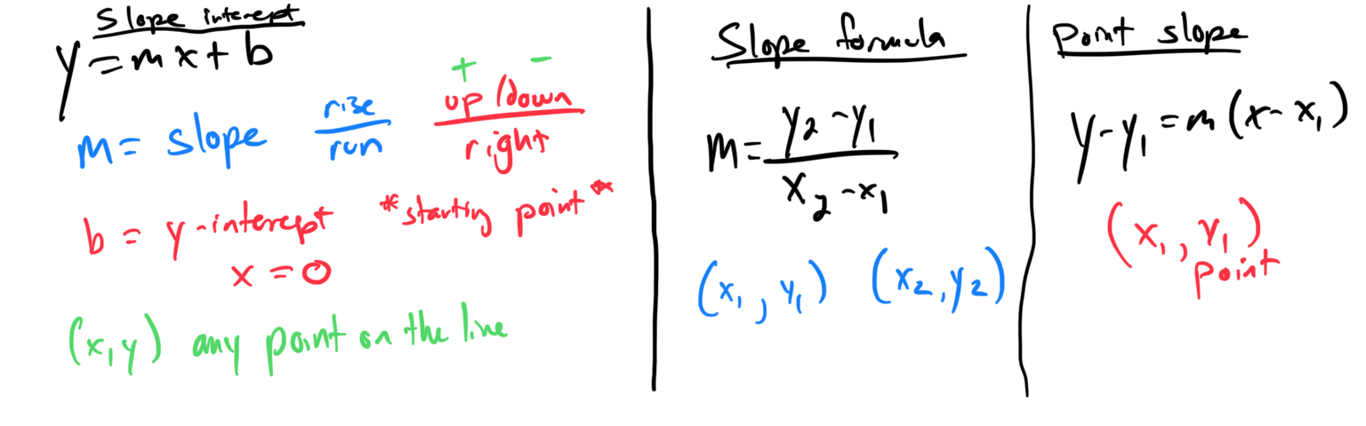 Slope intercept
y = mx + b
+ −
m = slope rise/run up/down/right
b = y-intercept *starting point*
x = 0
(x,y) any point on the line
Slope formula
m = (y₂ - y₁)/(x₂ - x₁)
(x₁, y₁) (x₂, y₂)
Point slope
y - y₁ = m(x - x₁)
(x₁, y₁)
point